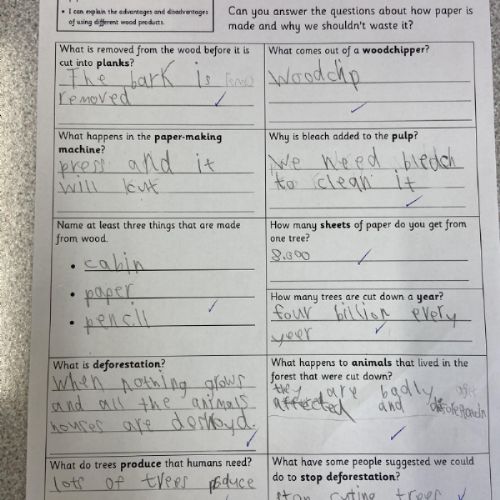 • I can explain the advantages and disadvantages
of using different wood products.
Can you answer the questions about how paper is
made and why we shouldn't waste it?
What is removed from the wood before it is
cut into planks?
The bark is
removed
What comes out of a woodchipper?
Woodchip
What happens in the paper-making
machine?
press and it
will
Why is bleach added to the pulp?
We need bleach
to clean it
Name at least three things that are made
from wood.
• cabin
• paper
• pencil
How many sheets of paper do you get from
one tree?
8,300
How many trees are cut down a year?
four billion every
yeer
What is deforestation?
When nothing grows
and all the animals
houses are
What happens to animals that lived in the
forest that were cut down?
they are badly
affected and
What do trees produce that humans need?
lots of trees
What have some people suggested we could
do to stop deforestation?
stop cuting trees